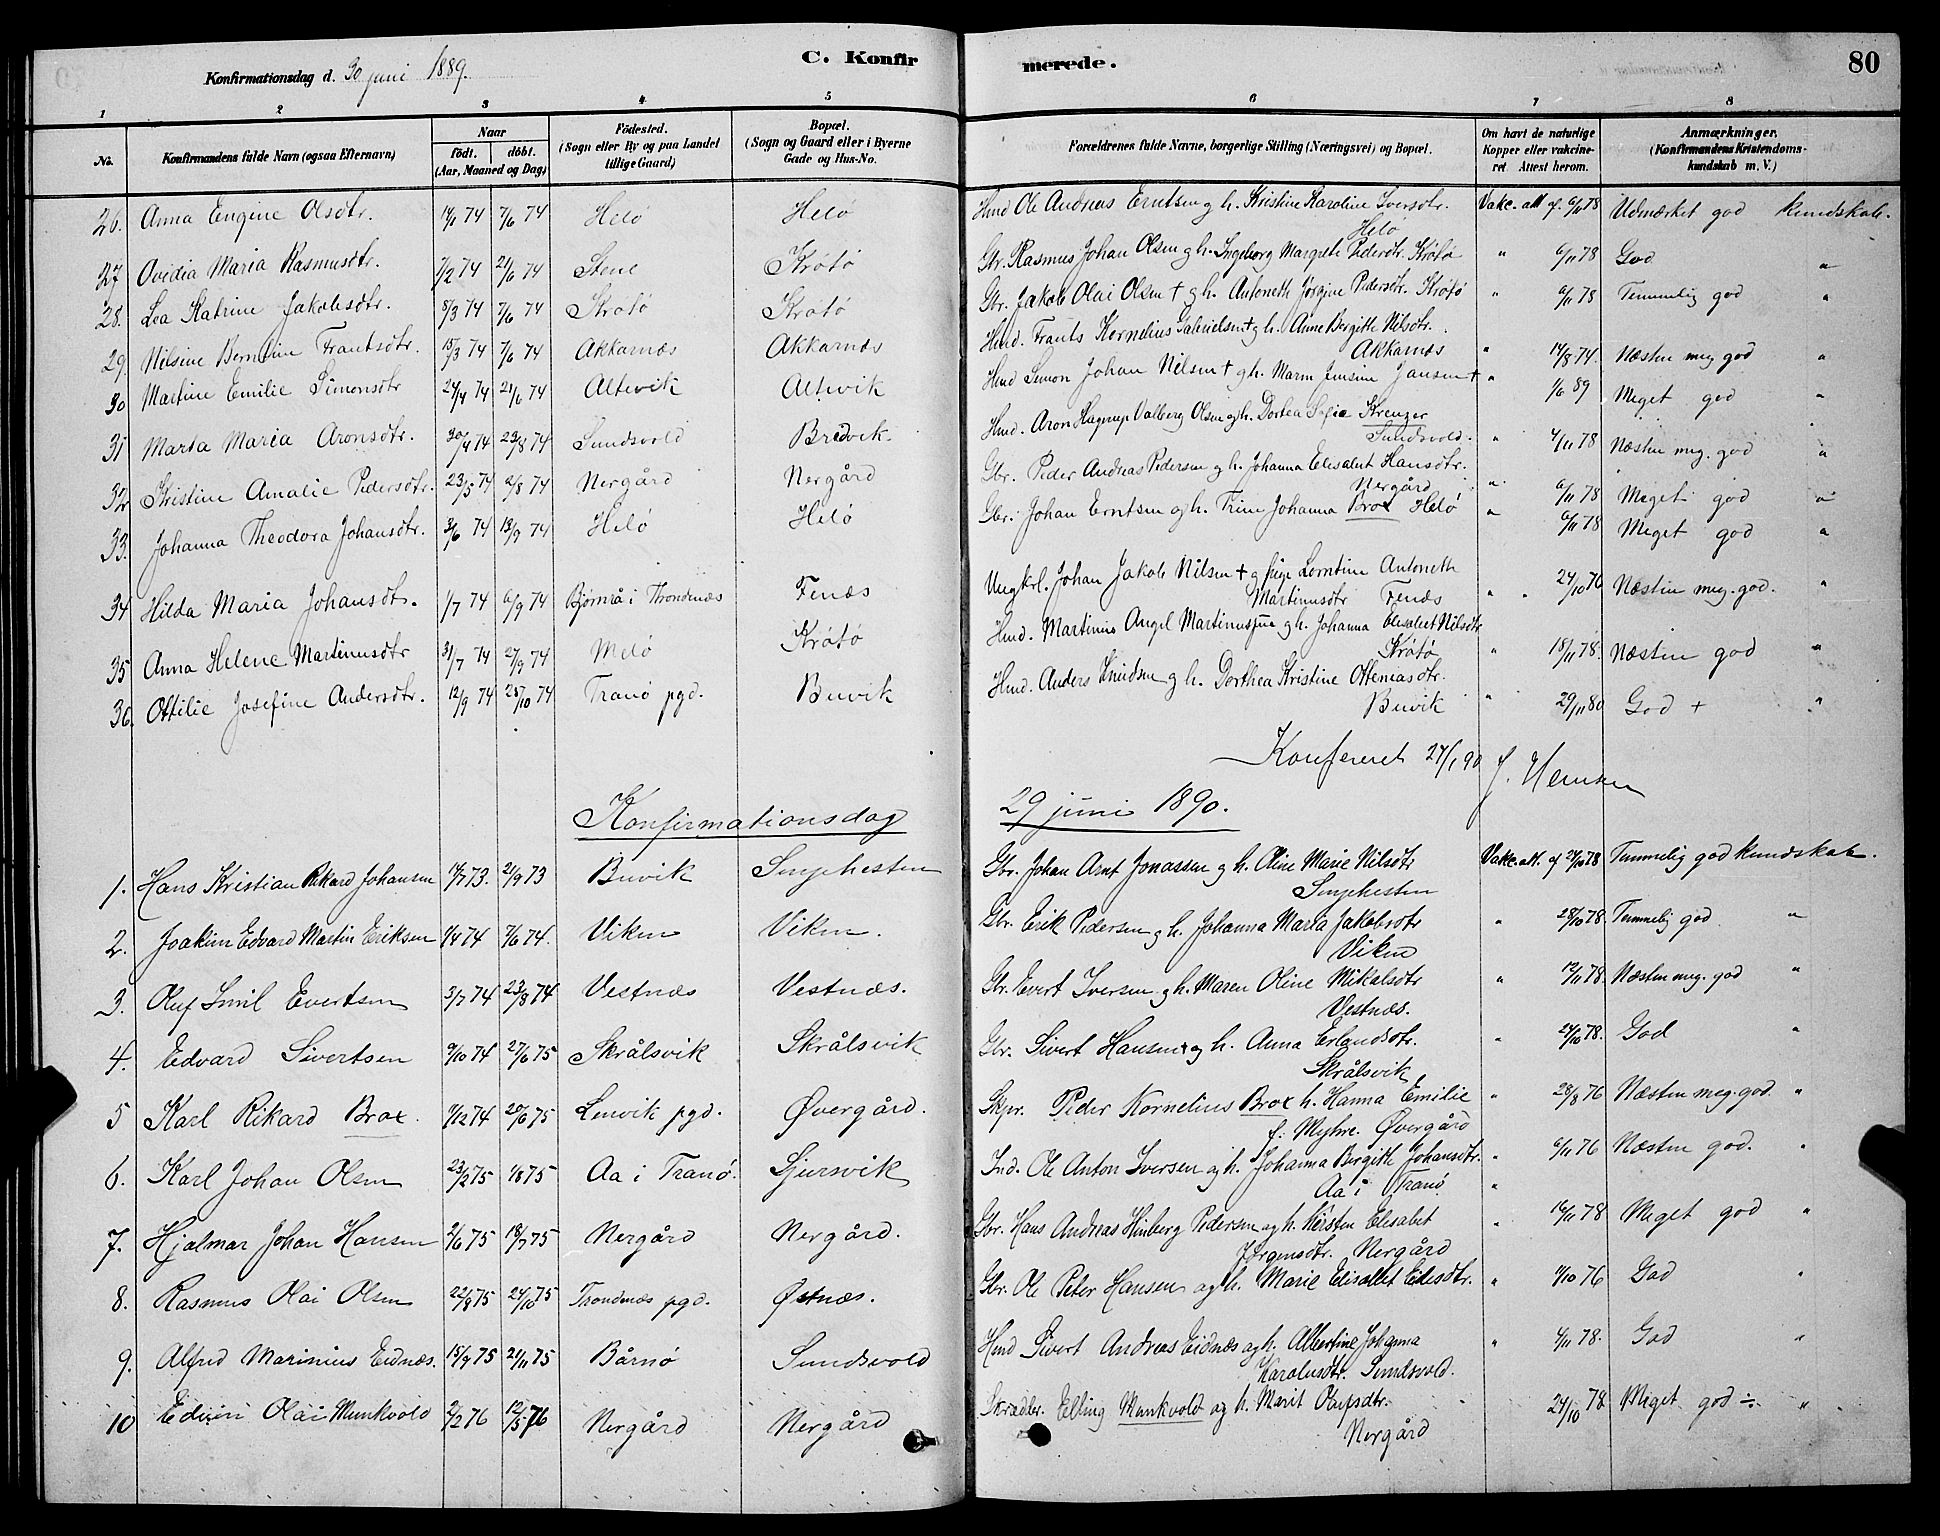 Konfirmationsdag d. 30 juni 1889. C. Konfir merede. 80
1 2 3 4 5 6 7 8
No. Konfirmandens fulde Navn (ogsaa Efternavn) Naar födt. döbt. (Aar, Maaned og Dag) Födested. (Sogn eller By og paa Landet tillige Gaard) Bopæl. (Sogn og Gaard eller i Byerne Gade og Hus-No. Forældrenes fulde Navne, borgerlige Stilling (Næringsvei) og Bopæl. Om havt de naturlige Kopper eller vakcineret Attest herom. Anmærkninger. (Konfirmandens Kristendomskundskab m. V.)
26. Anna Engine Olsdtr. 14/1 74 7/6 74 Helö Helö Hmd Ole Andreas Erntsen g h. Kristine Karoline Iversdtr. Vakc. att af 6/11 78 Udmærket god kundskab.
Helö
27 Ovidia Maria Rasmusdtr. 7/2 74 21/6 74 Stene Krötö Gbr. Rasmus Johan Olsen g h. Ingeborg Margreth Pedersdtr. Krötö " 6/11 78 God "
28. Lea Katrine Jakobsdtr. 8/3 74 7/6 74 Krötö Krötö Gbr. Jakob Olai Olsen + g h. Antoneth Jörgine Pedersdtr. Krötö " 6/11 78 Temmelig god "
29 Nilsine Berntine Frantsdtr. 15/3 74 7/6 74 Akkarnæs Akkarnæs Hmd. Frants Kornelius Gabrielsen + g h. Anne Bergitte Nilsdtr.
Akkarnæs " 14/8 74. Næsten meg god "
30 Martine Emilie Simonsdtr 24/4 74 21/6 74 Altevik Altevik Hmd Simon Johan Nilsen + g h. Maren Jensine Jansen + " 1/6 89 Meget god "
31 Marsa Maria Aronsdtr. 30/4 74 23/8 74 Sundsvold Bredvik. Hmd. Aron Hagrup Valberg Olsen g h. Dortea Sofie Kreuzer
Sundsvold. " 4/11 78 Næsten meg. god "
32 Kristine Amalie Pedersdtr. 23/5 74 2/8 74 Nergård Nergård Gbr. Peder Andreas Pedersen g h. Johanna Elisabet Hansdtr.
Nergård " 6/11 78 Meget god "
33. Johanna Theodora Johansdtr. 3/6 74 13/9 74 Helö Helö Gbr. Johan Erntsen og h. Trine Johanna Brox Helö " 6/11 78 Meget god "
34 Hilda Maria Johansdtr. 1/7 74 6/9 74 Bjørnrå i Trondenæs Fenæs Ungkrl. Johan Jakob Nilsen + g pige Lorntine Antoneth
Martinusdtr Fenæs " " 24/10 76 Næsten meg. god. "
35 Anna Helene Martinusdtr 31/7 74 27/9 74 Melö Krötö Hmd. Martinus Angel Martinussen g h. Johanna Elisabet Nilsdtr
Krötö " 18/11 78. Næsten god "
36. Ottilie Josefine Andersdtr. 12/9 74 25/10 74 Tranö pgd. Buvik Hmd. Anders Knudsen g h. Dorthea Kristine Otteniasdtr.
Buvik " 29/11 80 God + "
Konfereret 27/1 90 J.
Konfirmationsdag 29 juni 1890.
1. Hans Kristian Rikard Johansen 14/7 73. 21/9 73 Buvik Senjehesten Gbr. Johan Arnt Jonassen g h. Oline Marie Nilsdtr Vakc. att. af 29/10 78 Temmelig god kundskab.
Senjehesten
2. Joakim Edvard Martin Eriksen 1/4 74 7/6 74. Viken Viken. Gbr. Erik Pedersen g h. Johanna Maria Jakobsdtr " 28/10 78. Temmelig god "
Viken
3. Oluf Emil Evertsen 3/7 74 23/8 74 Vestnæs Vestnæs. Gbr. Evert Iversen g h. Maren Oline Mikalsdtr " 12/11 78. Næsten meg. god "
Vestnæs.
4. Edvard Sivertsen 9/10 74 27/6 75 Skrålsvik Skrålsvik Gbr. Sivert Hansen + og h. Anna Erlandsdtr. " 24/10 78. God "
Skrålsvik
5 Karl Rikard Brox. 7/12 74 20/6 75 Lenvik pgd. Øvergård. Skpr. Peder Kornelius Brox h. Hanna Emilie " 28/8 76 Næsten meg. god. "
f. Myhre. Øvergård
6. Karl Johan Olsen 23/2 75 1/8 75 Aa i Tranö Sjursvik Ind. Ole Anton Iversen og h. Johanna Bergith Johansdtr. " 6/11 76 Næsten god. "
Aa i Tranö "
7. Hjalmar Johan Hansen 2/6 75 18/7 75 Nergård Nergård. Gbr. Hans Andreas Hinberg Pedersen og h. Kirsten Elisabet " 14/11 78 Meget god "
Jørgensdtr. Nergård
8. Rasmus Olai Olsen 22/8 75 24/10 75 Trondenæs pgd. Østnæs. Gbr. Ole Peter Hansen og h. Marie Elisabet Eliasdtr. " 11/10 76 God "
9. Alfred Marinius Eidnæs. 15/9 75 21/11 75 Bårnö Sundsvold Hmd Sivert Andreas Eidnæs og h. Albertine Johanna " 4/11 78. God "
Karolusdtr. Sundsvold.
10 Edvin Olai Munkvold 2/2 76 12/5 76 Nergård Nergård Skrædder. Elling Munkvold og h. Marit Olufsdtr. 24/10 78 Meget god ÷ "
Nergård